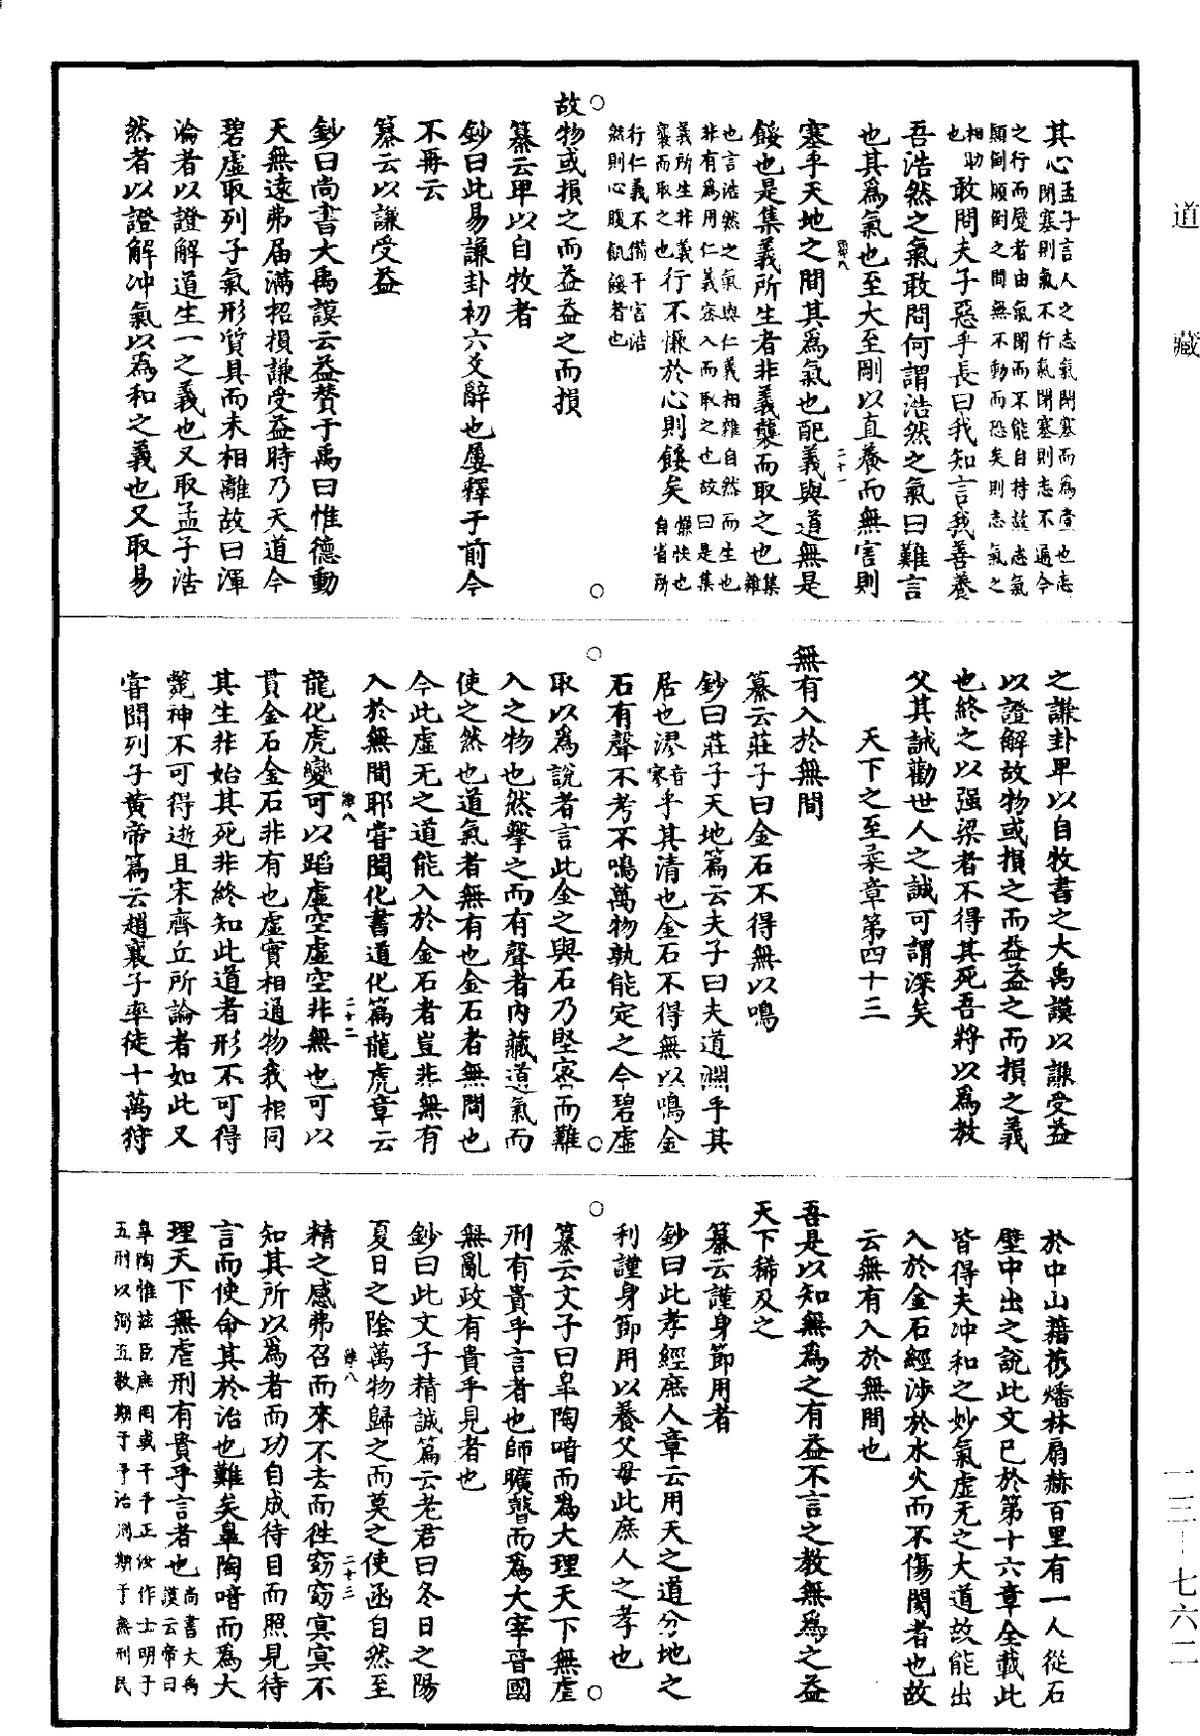 道藏
其心孟子言人之志氣閉塞而爲壹也志
閉塞則氣不行氣閉塞則志不通今
之行而蹷者由氣閉而不能自持故志氣
顛倒顛倒之間無不動而恐矣則志氣之
相動
也敢問夫子惡乎長曰我知言我善養
吾浩然之氣敢問何謂浩然之氣曰難言
也其爲氣也至大至剛以直養而無害則
塞乎天地之間其爲氣也配義與道無是
餒也是集義所生者非義襲而取之也集雜
也言浩然之氣與仁義相雜自然而生也
非有爲用仁義密入而取之也故曰是集
義所生非義
襲而取之也行不慊於心則餒矣慊快也自省所
行仁義不備干害浩
然則心腹飢餒者也
故物或損之而益益之而損
纂云卑以自牧者
鈔曰此易謙卦初六爻辭也屢釋于前今
不再云
纂云以謙受益
鈔曰尚書大禹謨云益贊于禹曰惟德動
天無遠弗届滿招損謙受益時乃天道今
碧虛取列子氣形質具而未相離故曰渾
淪者以證解道生一之義也又取孟子浩
然者以證解冲氣以爲和之義也又取易
之謙卦卑以自牧書之大禹謨以謙受益
以證解故物或損之而益益之而損之義
也終之以强梁者不得其死吾將以爲教
父其誡勸世人之誠可謂深矣
天下之至柔章第四十三
無有入於無間
纂云莊子曰金石不得無以鳴
鈔曰莊子天地篇云夫子曰夫道淵乎其
居也漻音寥乎其清也金石不得無以鳴金
石有聲不考不鳴萬物孰能定之今碧虛
取以爲說者言此金之與石乃堅密而難
入之物也然擊之而有聲者內藏道氣而
使之然也道氣者無有也金石者無間也
今此虛无之道能入於金石者豈非無有
入於無間耶嘗聞化書道化篇龍虎章云
龍化虎變可以蹈虛空虛空非無也可以
貫金石金石非有也虛實相通物我相同
其生非始其死非終知此道者形不可得
斃神不可得逝且宋齊丘所論者如此又
嘗聞列子黃帝篇云趙襄子率徒十萬狩
於中山藉芿燔林扇赫百里有一人從石
壁中出之說此文已於第十六章全載此
皆得夫冲和之妙氣虛无之大道故能出
入於金石經涉於水火而不傷閡者也故
云無有入於無間也
吾是以知無爲之有益不言之教無爲之益
天下稀及之
纂云謹身節用者
鈔曰此孝經庶人章云用天之道分地之
利謹身節用以養父母此庶人之孝也
纂云文子曰皐陶喑而爲大理天下無虐
刑有貴乎言者也師曠瞽而爲大宰晉國
無亂政有貴乎見者也
鈔曰此文子精誠篇云老君曰冬日之陽
夏日之陰萬物歸之而莫之使函自然至
精之感弗召而來不去而徃窈窈冥冥不
知其所以爲者而功自成待目而照見待
言而使命其於治也難矣臯陶喑而爲大
理天下無虐刑有貴乎言者也尚書大禹謨云帝曰
臯陶惟兹臣庶罔或干予正汝作士明于
五刑以弼五教期于予治刑期于無刑民
一三-七六二